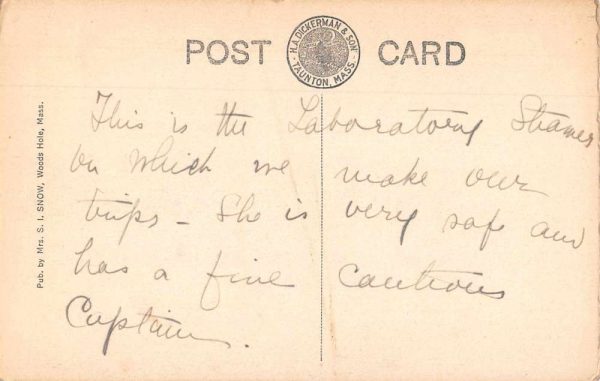 POST CARD
H.A. DICKERMAN & SON
TAUNTON, MASS.
Pub. by Mrs. S. I. SNOW, Woods Hole, Mass.
This is the Laboratory Steamer
on which we make our
trips - She is very safe and
has a fine cautious
Captain.